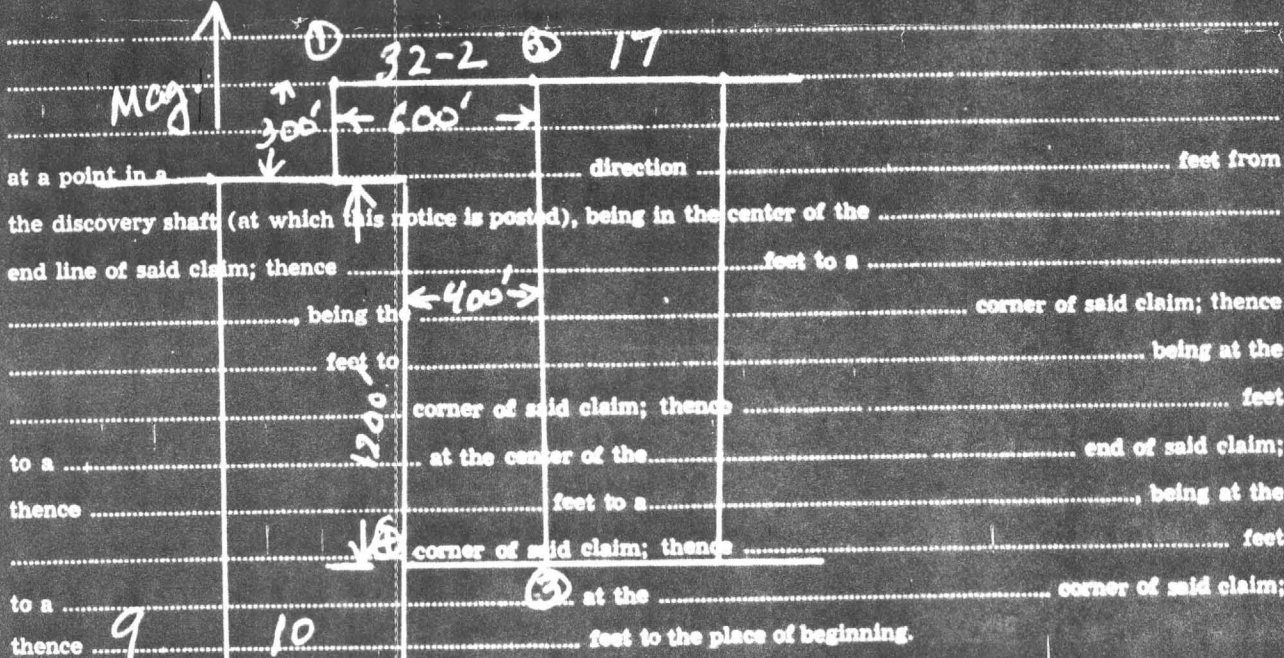 ① 32-2 ② 17
Mag.
300' 600'
at a point in a direction feet from
the discovery shaft (at which this notice is posted), being in the center of the
end line of said claim; thence feet to a
400'
, being the corner of said claim; thence
feet to being at the
1200'
corner of said claim; thence feet
to a at the center of the end of said claim;
thence feet to a , being at the
④ corner of said claim; thence feet
to a ③ at the corner of said claim;
thence 9 10 feet to the place of beginning.